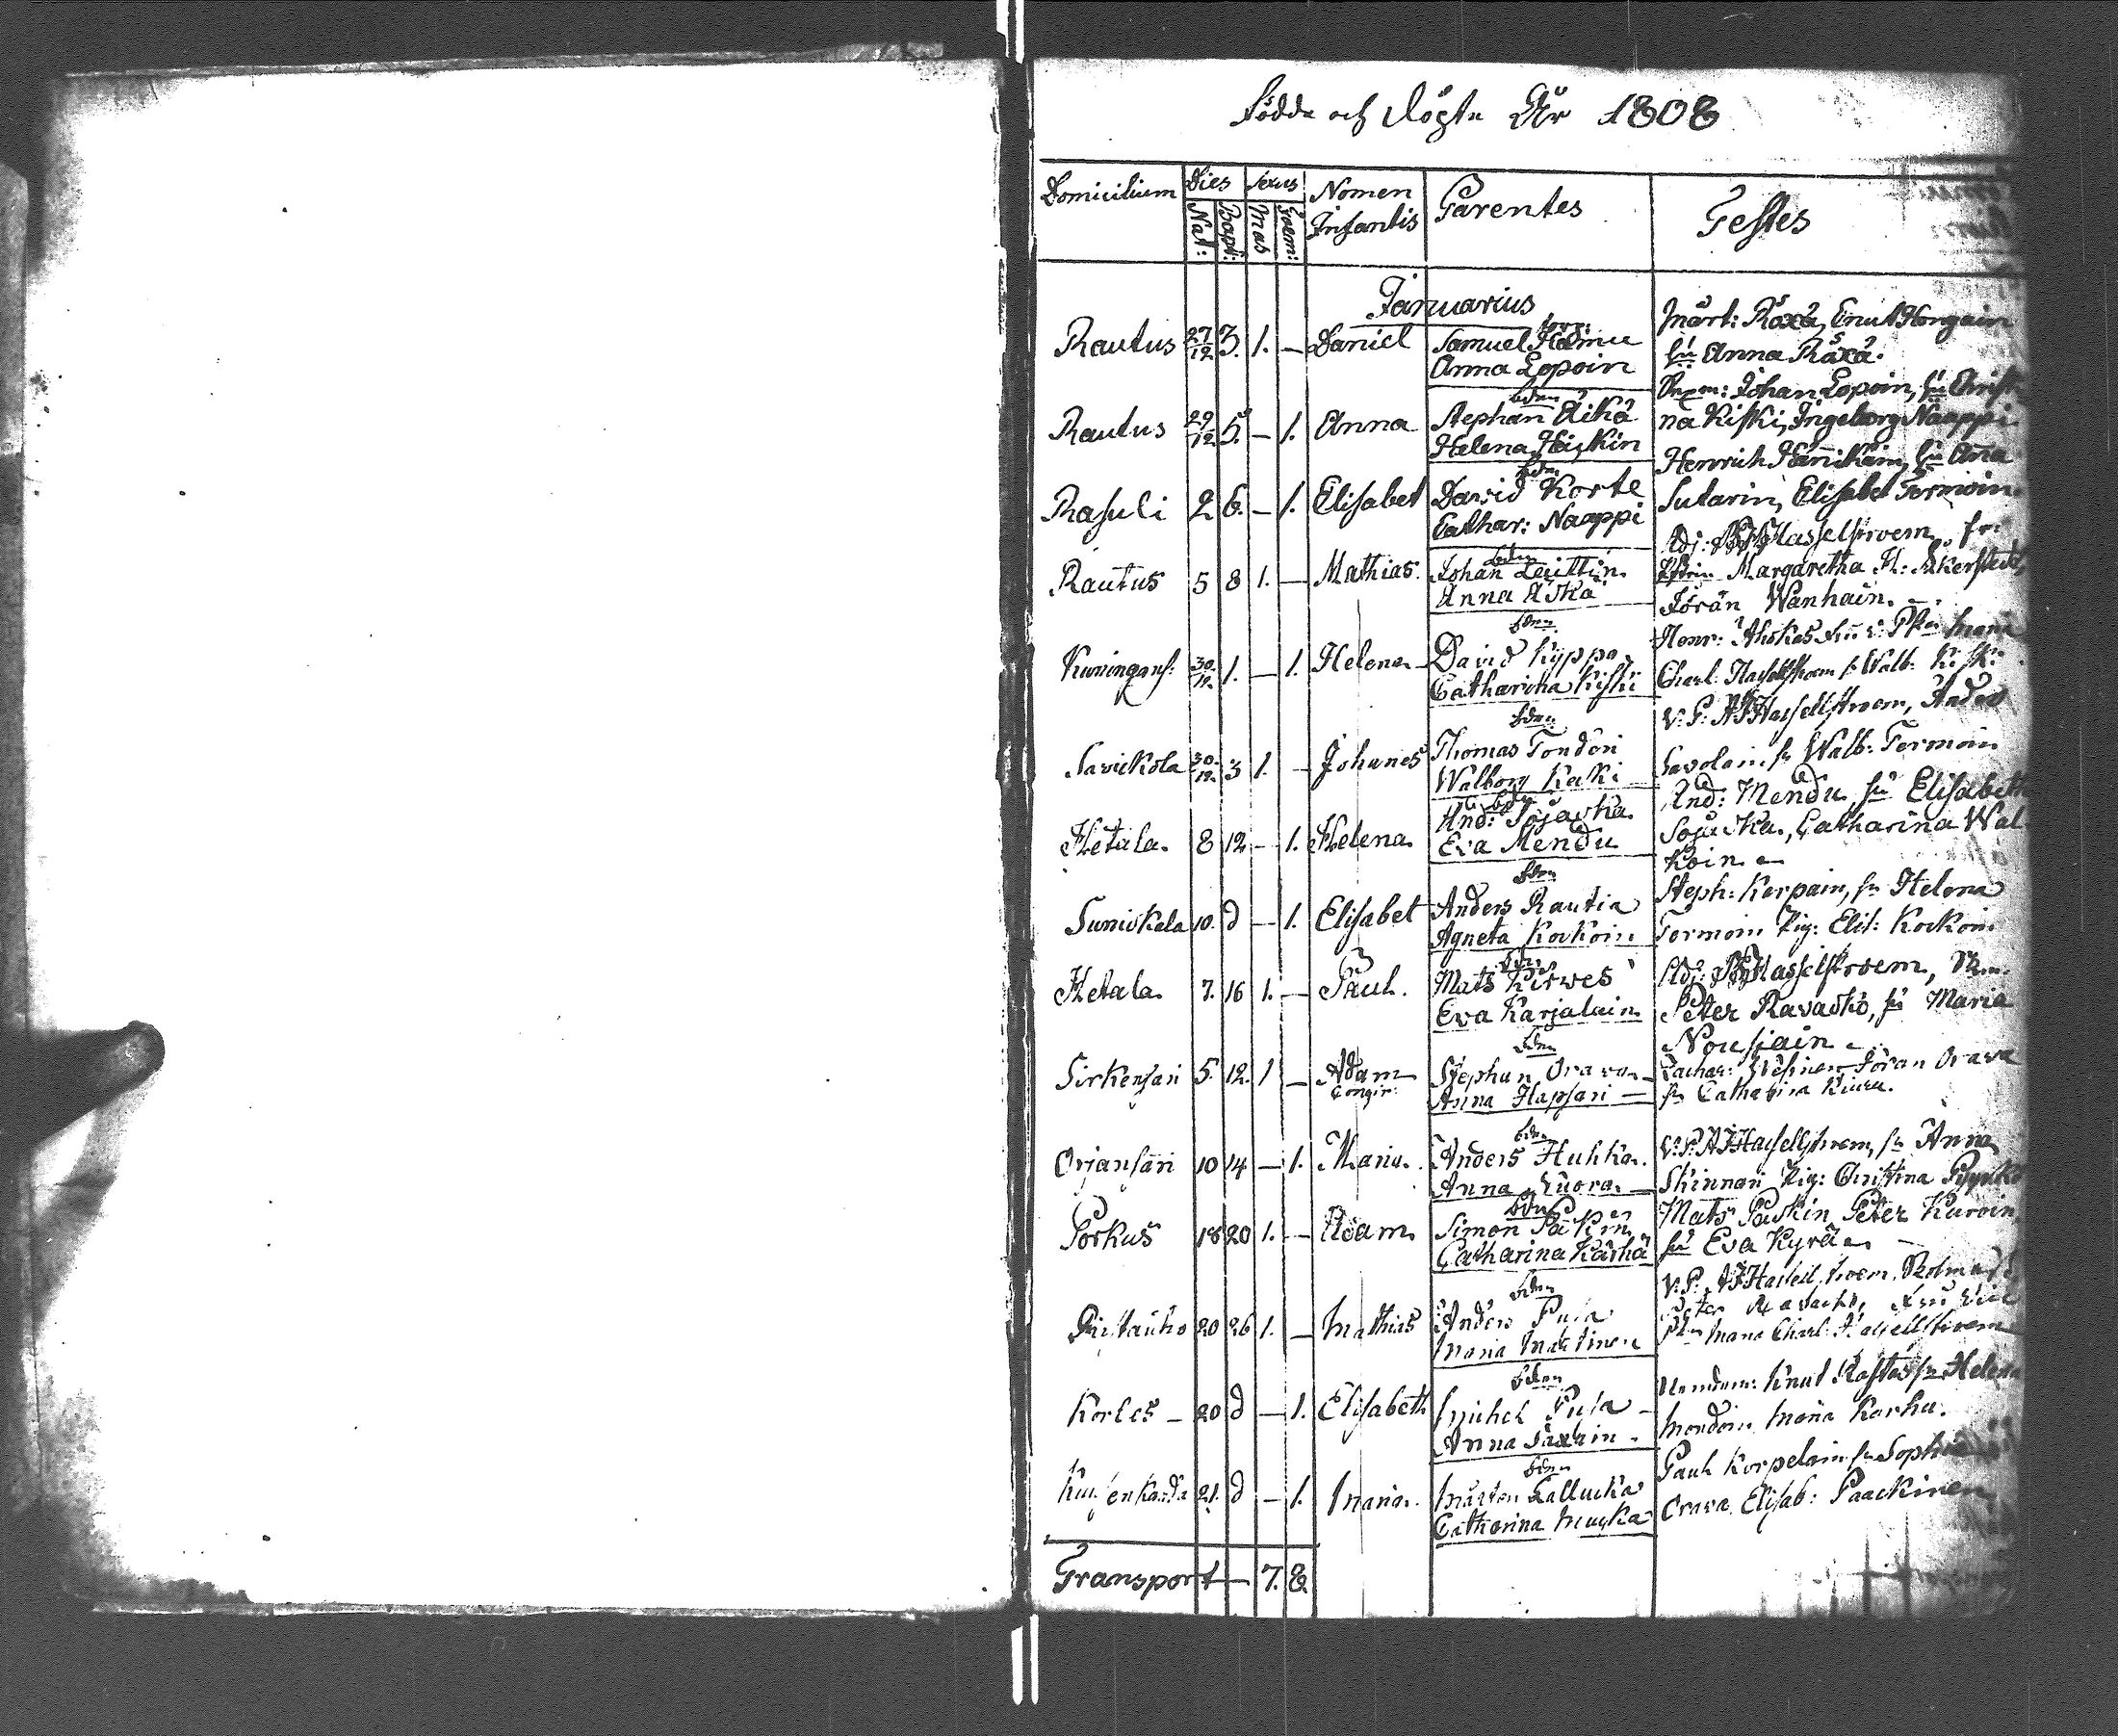 Födde och Döpte År 1808
Domicilium Dies Sexus Nomen Infantis Parentes Testes
Nat: Bapt: Mas Foem:
Januarius
Rautus 27/12 3. 1. — Daniel Samuel
Anna Lopoin
Märt: Räxä, Cnut Hongain
su Anna Räxä.
Rautus 29/12 5. — 1. Anna Bdn Stephan Äikä
Helena Heiskin
Johan Lopoin, su Christi
na Kiski, Ingeborg Naappi
Rasuli 2 6. — 1. Elisabet Bdn David Korte
Cathar: Naappi
Henrich Hännikäin, su Anna
Sutarin, Elisabet Termoin.
Rautus 5 8 1. — Mathias. Bdn Johan Leittin
Anna Äikä
Adj: Hasselstroem
Margaretha
Jörän Wanhain.
Kuninganss: 30/12 1. — 1. Helena Bdn David Kyppa
Catharina Kiski
Henr: Ahokas
Charl: Hasselstroem sn Walb: Kiski
Savickola 30/12 3 1. — Johanes Bdn Thomas Tondon
Walborg Kecki
V: P: AJHasselstroem, Anders
Savolain sn Walb: Termoin
Hetala. 8 12 — 1. Helena Bdn And: Sojacka.
Eva Mendu
And: Mendu su Elisabeth
Sojacka, Catharina Wal
koin
Sunickala 10. d — 1. Elisabet Bdn Anders Rautia
Agneta Kockoin
Steph: Kerpain, sn Helena
Termoin Pig: Elis: Kockoin
Hetala. 7. 16 1. — Paul. Bdn Mats Kirwes
Eva Karjalain
Adj: Hasselstroem,
Peter Ravacko, su Maria
Nousiain
Sirkensari 5. 12. 1 — Adam Bdn Stephan Orava
Anna Hapsari —
Jöran Orava
sn Catharina Kiuru.
Orjansari 10 14 — 1. Maria. Bdn Anders Huhka.
Anna Kuora —
V: P: AJHasselstroem, sn Anna
Skinnari Pig: Christina
Porkus 18 20 1. — Adam Bdn Simon Päkin
Catharina Karhä
Mats Paskin Peter Kuroin
su Eva Kyrä
20 26 1. — Mathias Bdn Anders Pusa
Maria Martinen
V: P: AJHasselstroem,
Peter Ravacko,
Maria Charl: Hasselstroem
Kortes — 20 d — 1. Elisabeth Bdn Michel Pusa
Anna Saxain
Knut Kostas sn Helena
Mondoin Maria Karhu.
21. d — 1. Maria. Bdn Mårten Lallucka
Catharina Muska
Paul Korpelain sn Sophia
Orava Elisab: Paackinen
Transport — 7. 8